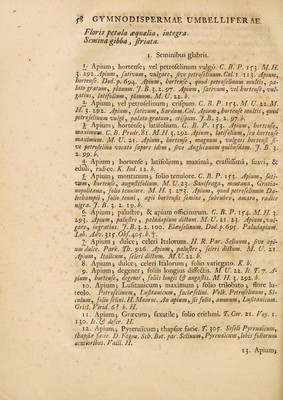 58 GYMNODISPERMAE UMBELLIFERAE
Floris petala æqualia, integra.
Semina gibba, striata.
1. Seminibus glabris.
1. Apium, hortense; vel petroselinum vulgò. C. B. P. 153. M. H.
3. 292. Apium, sativum, vulgare, sive petroselinum Cæs. 1 213. Apium,
hortense. Dod. p. 694. Apium, hortense, quod petroselinum multis, pa-
lato gratum, planum. J. B. 3. 2. 97. Apium, sativum, vel hortense, vul-
gatius, latifolium, planum. M. U. 22. b.
2. Apium, vel petroselinum, crispum. C. B. P. 153. M. U. 22. M.
H. 3. 292. Apium, sativum,
petroselinum vulgò, palato gratum, crispum. J. B. 3. 2. 97. b.
3. Apium, hortense, latifolium. C. B. P. 153. Apium, hortense,
maximum. C. B. Prodr. 81. M. H. 3. 292. Apium, latifolium, seu hortense
maximum. M. U. 21. Apium, hortense, magnum, vulgari hortensi si-
ve petroselino vocato sapore idem, sive Anglicanum quibusdam. J. B. 3.
2. 99. b.
4. Apium, hortense, latifolium, maximâ, crassissimâ, suavi, &
eduli, radice. K. Ind. 12. b.
5. Apium, montanum, folio tenuiore. C. B. P. 153. Apium, sati-
vum, hortense, angustifolium. M. U. 23. Saxifraga, montana,
folio tenuiore. M. H. 3. 273. Apium, quod petroselinum
folio tenui, apii hortensis semine, subrubro, amaro, radice
nigra. J. B. 3. 2. 19. b.
6. Apium, palustre, & apium officinarum. C. B. P. 154. M. H. 3.
293. Apium, palustre, paludapium dictum. M. U. 21. 23. Apium, vul-
gare, ingratius. J. B. 3. 2. 100. Elæoselinum. Dod. p. 695. Paludapium.
Lob. Adv. 315. Obs. 405. b. ?.
7. Apium, dulce; celeri Italorum. H. R. Par. Selinum, sive api-
um dulce. Park. Th. 926. Apium, palustre, seleri dictum. M. U. 21.
Apium, Italicum, seleri dictum. M. U. 22. b.
8. Apium, dulce; celeri Italorum; folio variegato. K. b.
9. Apium, degener; foliis longius dissectis. M. U. 22.
hortense, degener, foliis longis & angustis. M. H. 3. 292. b.
10. Apium, Lusitanicum; maximum; folio trilobato; flore lu-
teolo. Petroselinum, Lusitanicum,
11. Apium; Græcum; saxatile; folio crithmi. T. Cor. 21. Voy. 1.
12. Apium; Pyrenaïcum; thapsiæ facie. T. 305. Seseli Pyrenaicum,
thapsiæ facie. D. Fagon. Sch. Bot. par. Selinum, Pyrenaicum, lobis foliorum
acutioribus. Vaill. H.
13. Apium;